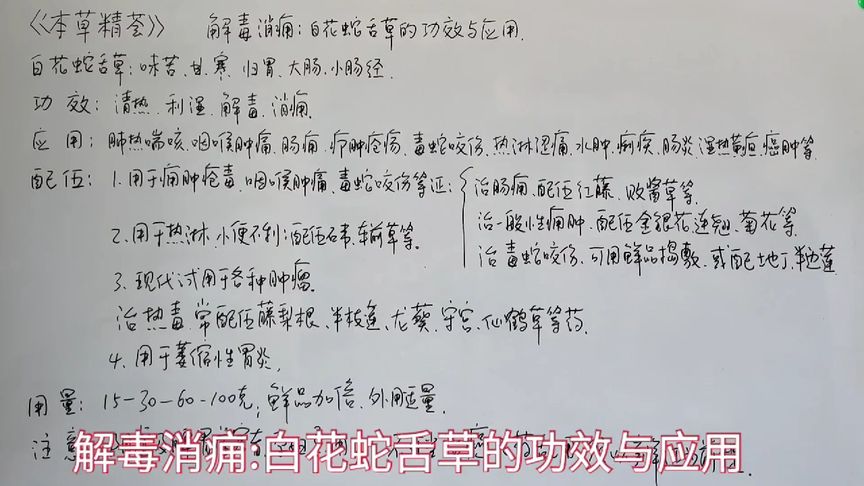 《本草精荟》 解毒消痈:白花蛇舌草的功效与应用.
白花蛇舌草:味苦、甘、寒、归胃、大肠、小肠经.
功效:清热、利湿、解毒、消痈.
应用:肺热喘咳、咽喉肿痛、肠痈、疖肿疮疡、毒蛇咬伤、热淋涩痛、水肿、痢疾、肠炎、湿热黄疸、癌肿等.
配伍:1.用于痈肿疮毒、咽喉肿痛、毒蛇咬伤等证:
治肠痈、配伍红藤、败酱草等.
治一般性痈肿、配伍金银花、连翘、菊花等.
治毒蛇咬伤、可用鲜品捣敷、或配地丁、半边莲
2.用于热淋、小便不利:配伍石韦、车前草等.
3.现代试用于各种肿瘤.
治热毒、常配伍藤梨根、半枝莲、龙葵、守宫、仙鹤草等药.
4.用于萎缩性胃炎.
用量:15-30-60-100克;鲜品加倍、外用适量.
注意
解毒消痈:白花蛇舌草的功效与应用